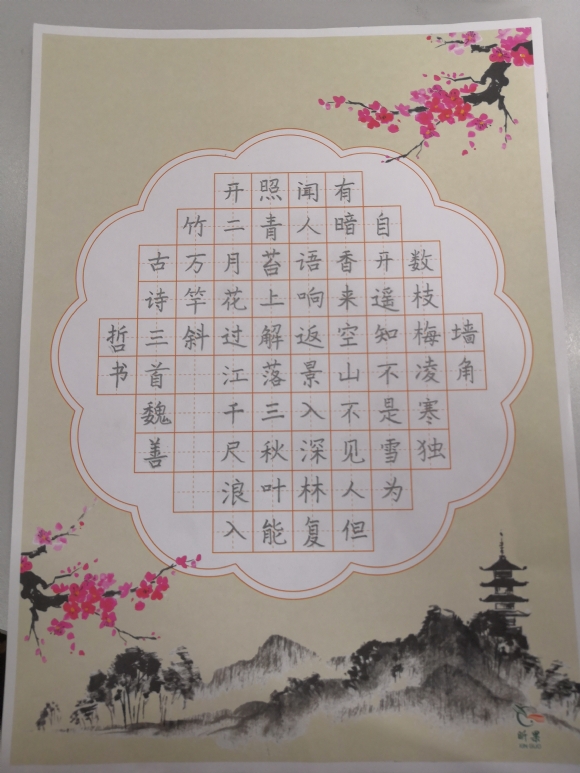 墙角
数枝梅凌寒独
自开遥知不是雪为
有暗香来空山不见人但
闻人语响返景入深林复
照青苔上解落三秋叶能
开二月花过江千尺浪入
竹万竿斜
古诗三首魏善
哲书